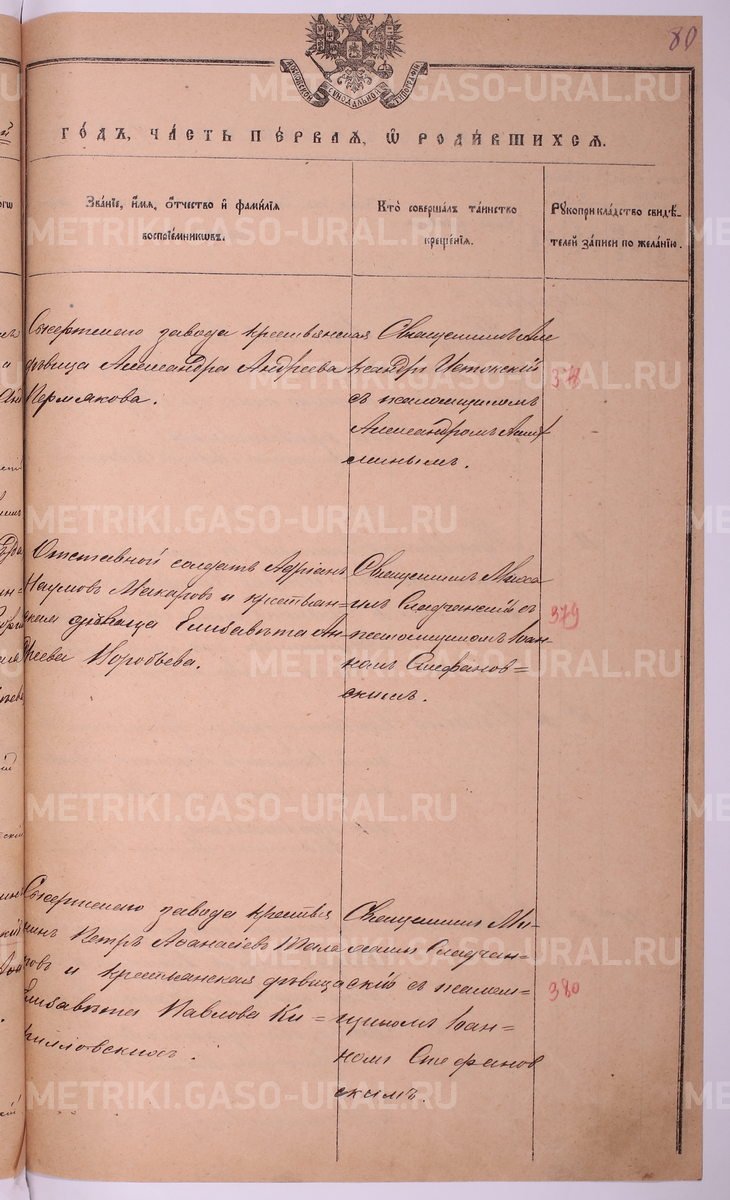 80
МОСКОВСКОЙ СѴНОДАЛЬНОЙ ТИПОГРАФІИ
ГО́ДЪ, ЧА́СТЬ ПЕ́РВАЯ, Ѿ РОДИ́ВШИХСЯ.
Зва́нїе, и҆́мя, ѻ҆́тчество и҆ фами́лїя
воспрїе́мникωвъ.
Кто̀ соверша́лъ та́инство
креще́нїя.
Рꙋкоприкла́дство свидѣ́-
телей за́писи по жела́нїю.
Сысертскаго завода крестьянская
дѣвица Александра Андреева
Пермякова.
Священникъ Але
ксандръ Истокскій
съ псаломщикомъ
Александромъ
378
Отставной солдатъ Адріанъ
Наумовъ Макаровъ и крестьян-
ская дѣвица Елизавѣта Ан-
дреева Воробьева.
Священникъ Миха
илъ Сладчанскій съ
псаломщикомъ Іоан-
номъ Стефанов-
скимъ.
379
Сысертскаго завода крестья
нинъ Петръ Аѳанасіевъ
и крестьянская дѣвица
Елизавѣта Павлова Ки-
рилловскихъ.
Священникъ Ми-
хаилъ Сладчан-
скій съ псалом-
щикомъ Іоан-
номъ Стефанов
скимъ.
380
METRIKI.GASO-URAL.RU